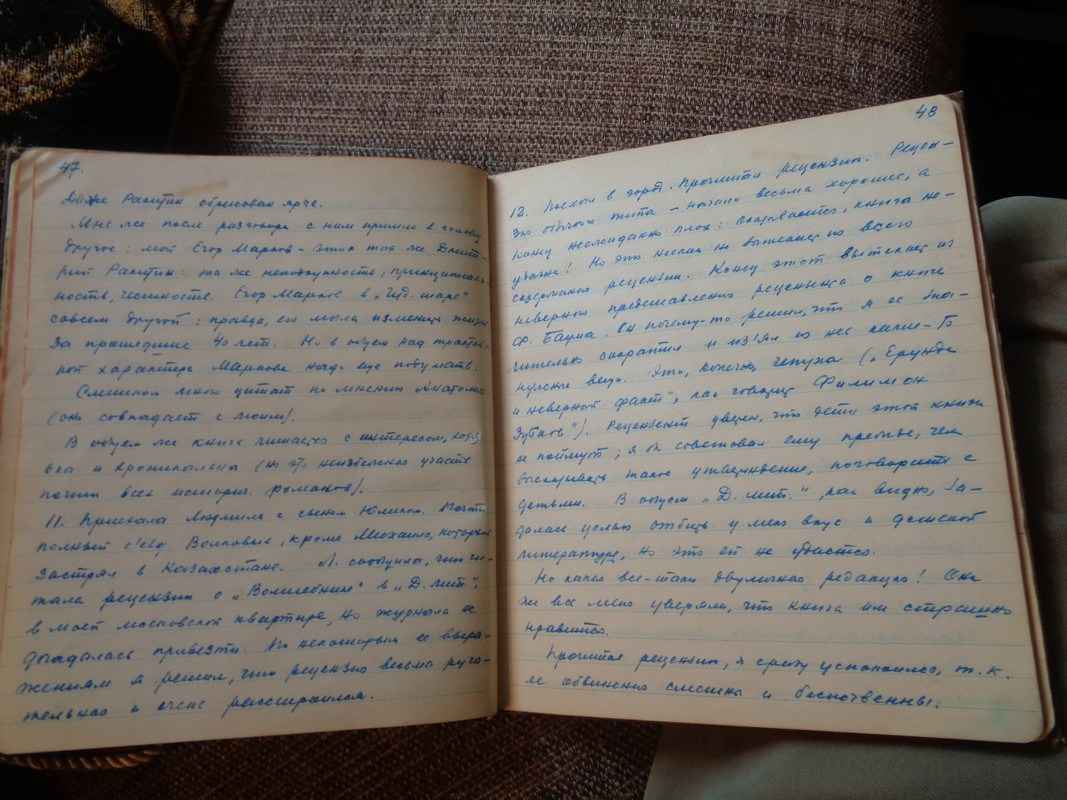 47.
Даже Ракитин обрисован ярче.
Мне же после разговора с ним пришло в голову
другое: мой Егор Марков – этот тот же Дмит-
рий Ракитин: та же неподкупность, принципиаль-
ность, честность. Егор Марков в „Чуд. шаре“
совсем другой: правда, его могла изменить жизнь
за прошедшие 40 лет. Но в общем над трактов-
кой характера Маркова надо еще подумать.
Слишком много цитат по мнению Анатолия
(оно совпадает с моим).
В общем же книга читается с интересом,
и хроникальна (но это неизбежная участь
почти всех историч. романов).
11. Приехала Людмила с сыном Юликом. Почти
полный с'езд Волковых, кроме Михаила, который
застрял в Казахстане. Л. сообщила, что чи-
тала рецензию о „Волшебнике“ в „Д. лит.“,
в моей московской квартире, но журнала не
догадалась привезти. По некоторым ее выра-
жениям я решил, что рецензия весьма руга-
тельная и очень расстроился.
48
12. Поехал в город. Прочитал рецензию. Рецен-
зия обычного типа – начало весьма хорошее, а
конец неожиданно плох: оказывается, книга не-
удачна! Но это никак не вытекает из всего
содержания рецензии. Конец этот вытекает из
неверного представления рецензента о книге
Фр. Баума. Он почему-то решил, что я ее зна-
чительно сократил и из'ял из нее какие-то
вещи. Это, конечно, чепуха („Ерунда
и неверной факт“, как говорит Филимон
Зубков“). Рецензент уверен, что дети этой книги
не поймут; я б советовал ему прежде, чем
высказывать такое утверждение, поговорить с
детьми. В общем „Д. лит.“, как видно, за-
далась целью отбить у меня вкус к детской
литературе, но это ей не удастся.
Но какая все-таки двуличная редакция! Они
же все меня уверяли, что книга им страшно
нравится.
Прочитав рецензию, я сразу успокоился, т. к.
ее обвинения смешны и беспочвенны.